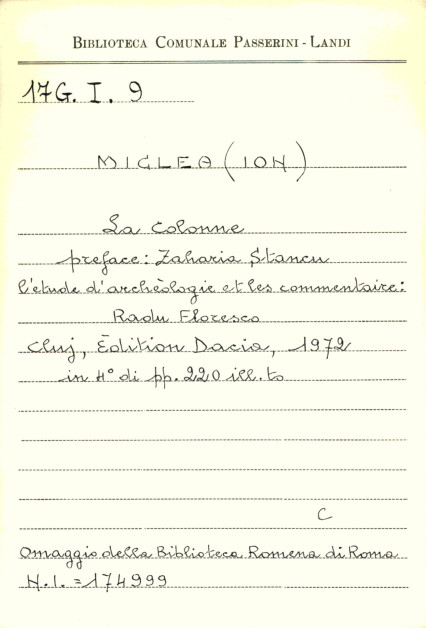 BIBLIOTECA COMUNALE PASSERINI - LANDI
17G. I. 9
MIGLEA (ION)
La Colonne
preface: Zaharia Stancu
l'étude d'archèologie et les commentaire:
Radu Floresco
Cluj, Édition Dacia, 1972
in 4° di pp. 220 ill.to
C
Omaggio della Biblioteca Romena di Roma
N.I. = 174999